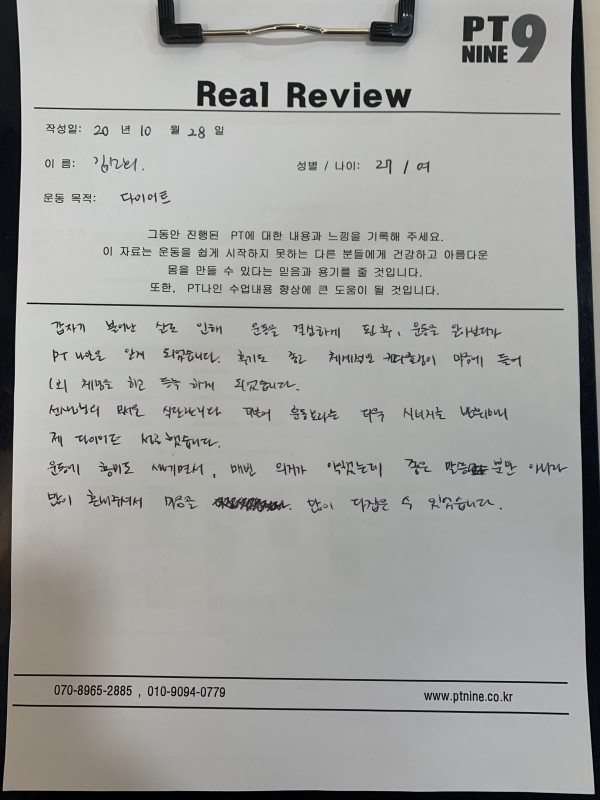 PT 9
NINE
Real Review
작성일: 20 년 10 월 28 일
이 름: 김
성별 / 나이: 27 / 여
운동 목적: 다이어트
그동안 진행된 PT에 대한 내용과 느낌을 기록해 주세요.
이 자료는 운동을 쉽게 시작하지 못하는 다른 분들에게 건강하고 아름다운
몸을 만들 수 있다는 믿음과 용기를 줄 것입니다.
또한, PT나인 수업내용 향상에 큰 도움이 될 것입니다.
갑자기 불어난 살로 인해 운동을 결심하게 된 후, 운동을 알아보다가
PT 나인을 알게 되었습니다. 후기도 좋고 체계적인 마음에 들어
1회 체험을 하고 등록 하게 되었습니다.
선생님의 더불어 시너지를
제 다이어트 성공했습니다.
운동에 흥미도 생기면서, 매번 의지가 약했는데 좋은 말씀 뿐만 아니라
많이 혼내주셔서 마음을 많이 다잡을 수 있었습니다.
070-8965-2885 , 010-9094-0779
www.ptnine.co.kr